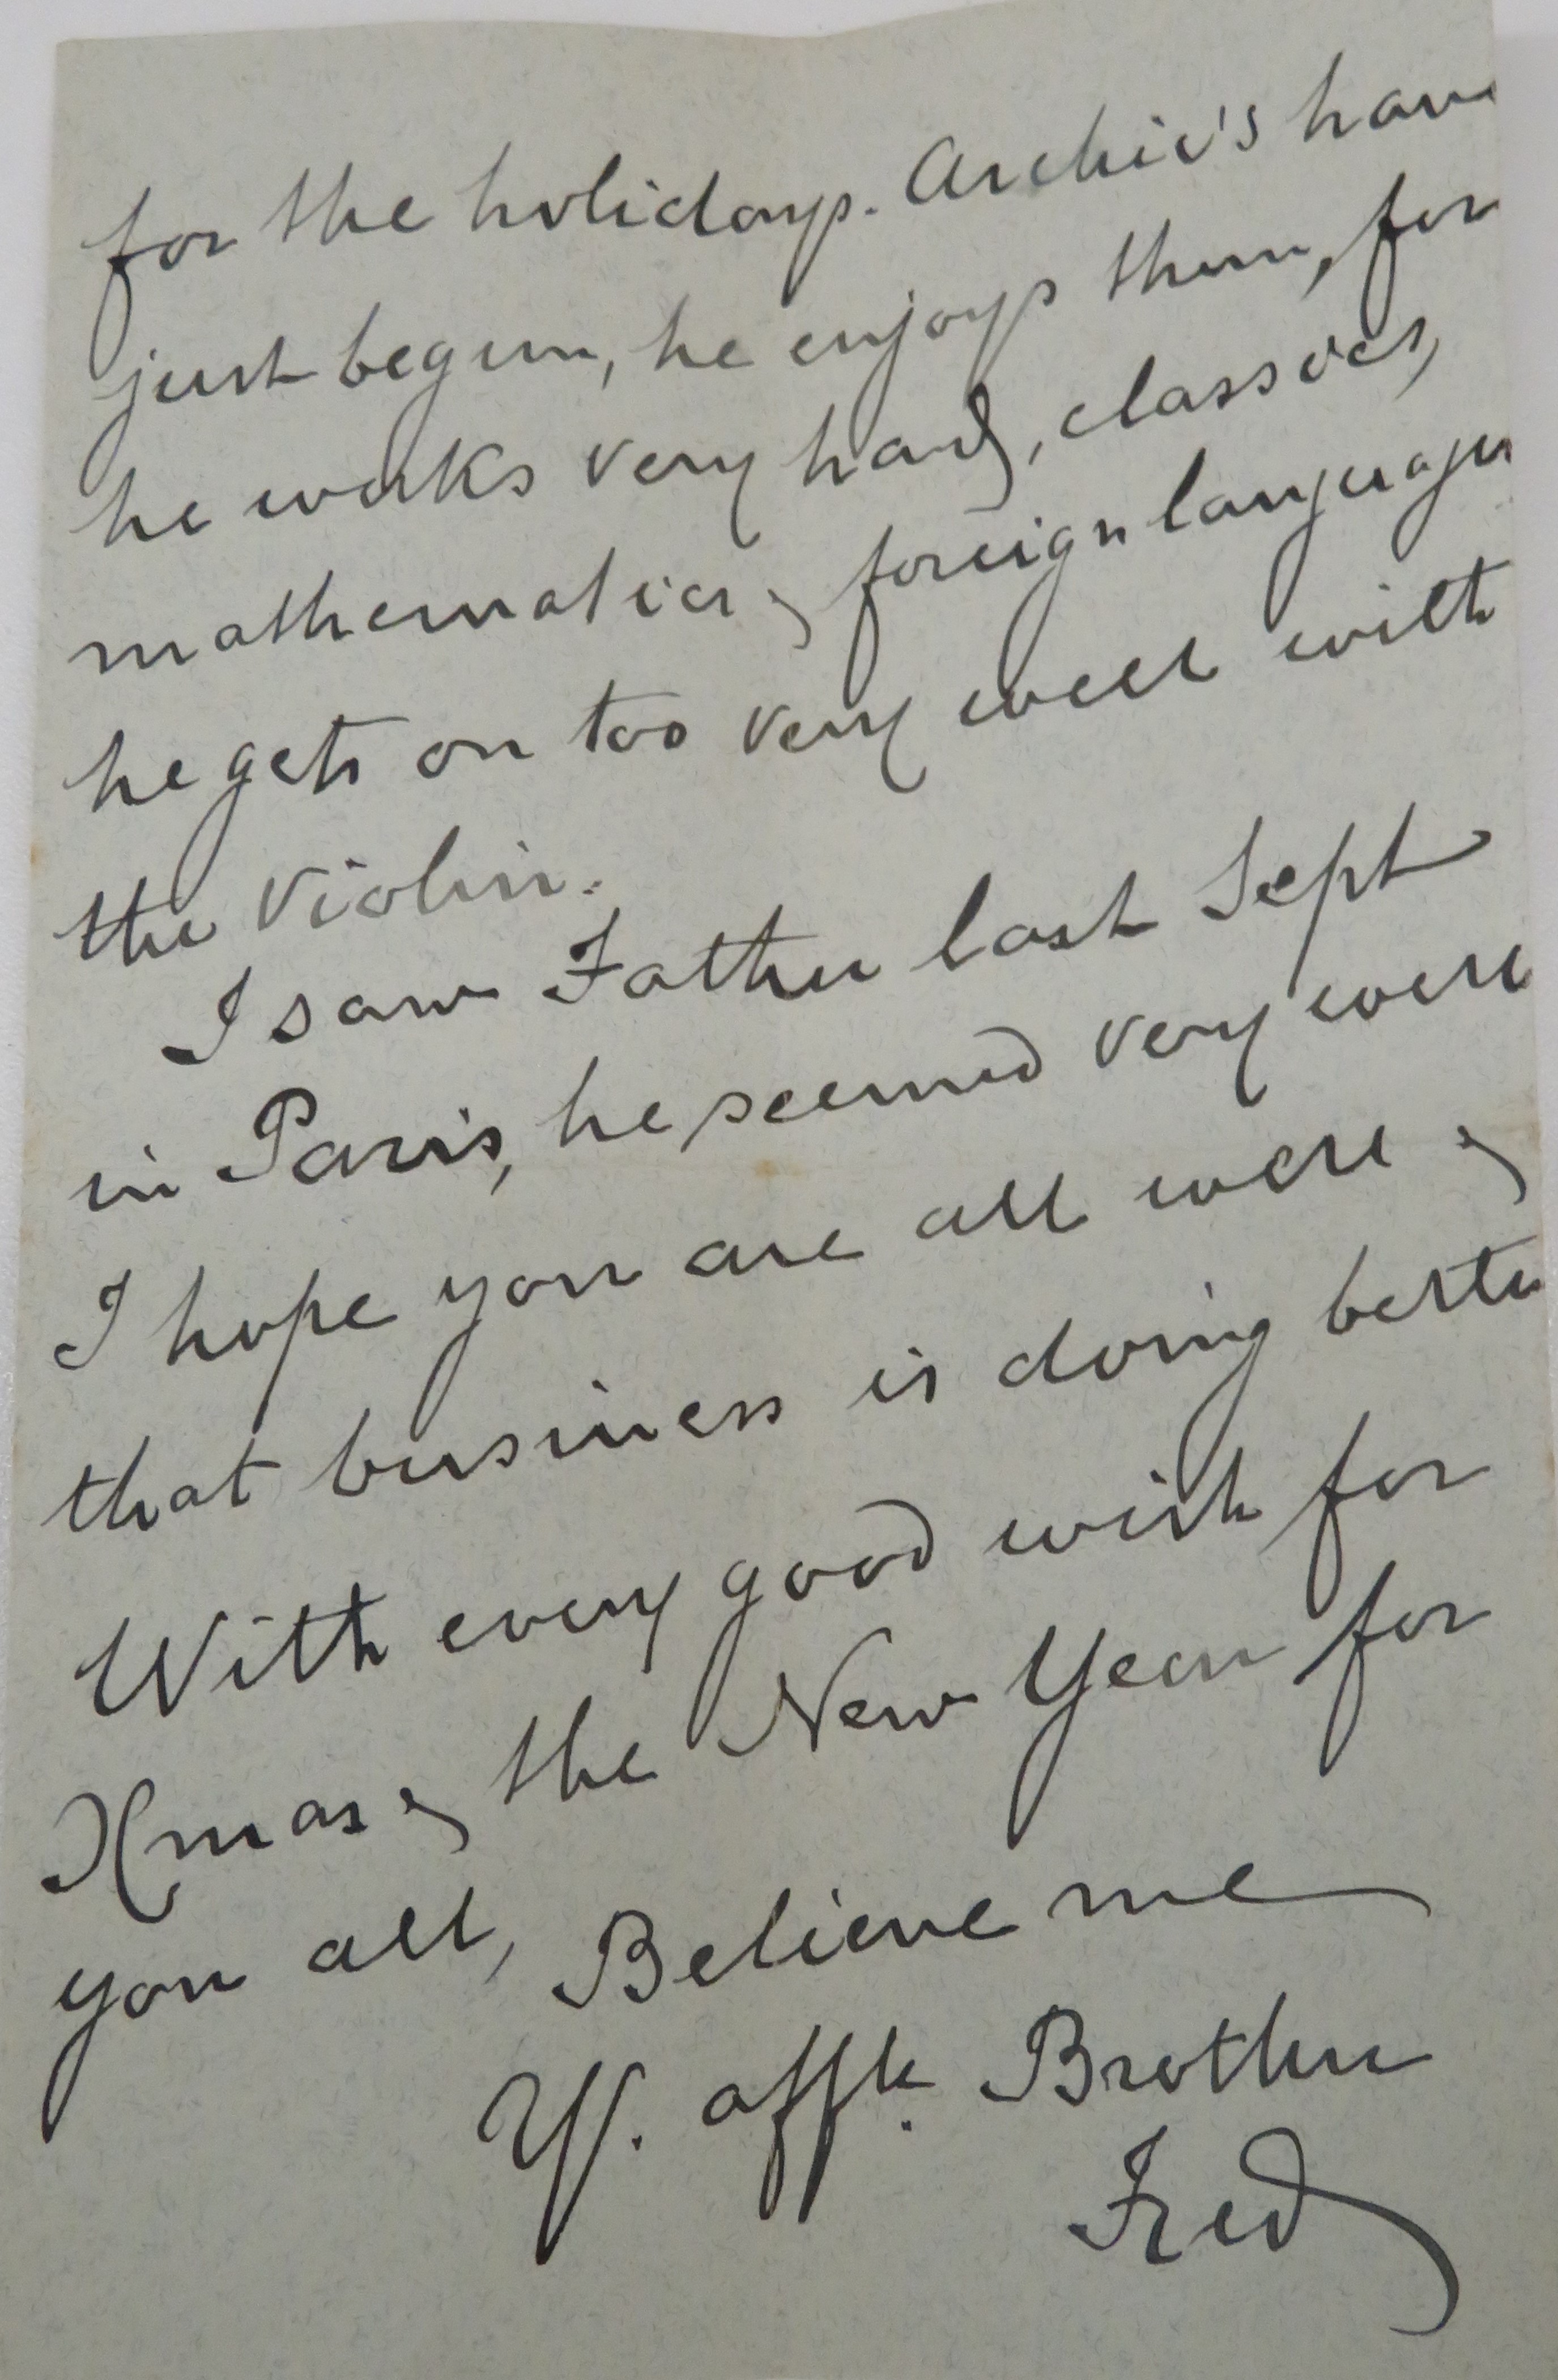 for the holidays. Archie's have
just begun, he enjoys them, for
he works very hard, classics,
mathematics & foreign languages
he gets on too very well with
the violin.
I saw Father last Sept
in Paris, he seemed very well
I hope you are all well &
that business is doing better
With every good wish for
Xmas & the New Year for
you all, Believe me
Yr. affte. Brother
Fred